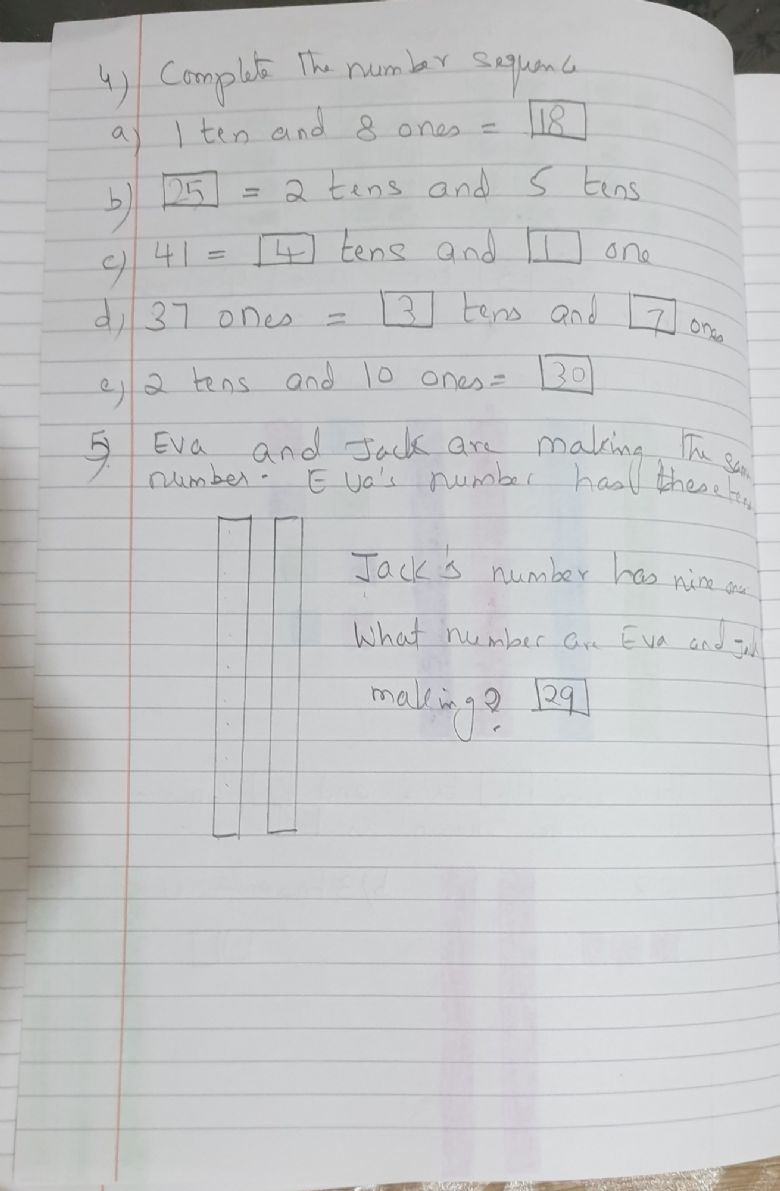 4) Complete The number sequence
a) 1 ten and 8 ones = 18
b) 25 = 2 tens and 5 tens
c) 41 = 4 tens and 1 one
d) 37 ones = 3 tens and 7 ones
e) 2 tens and 10 ones = 30
5) Eva and Jack are making The same
number. Eva's number has these tens
Jack's number has nine ones
What number are Eva and Jack
making? 29